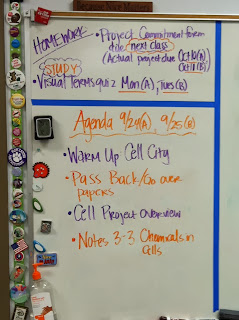 Because Nice Matters
HOMEWORK
• Project Commitment form
due next class
(Actual project due Oct 10(A)
Oct 11(B))
STUDY
• Visual Terms quiz Mon(A), Tues(B)
Agenda 9/24(A), 9/25(B)
• Warm Up Cell City
• Pass Back/Go over
papers
• Cell Project Overview
• Notes 3-3 Chemicals in
Cells